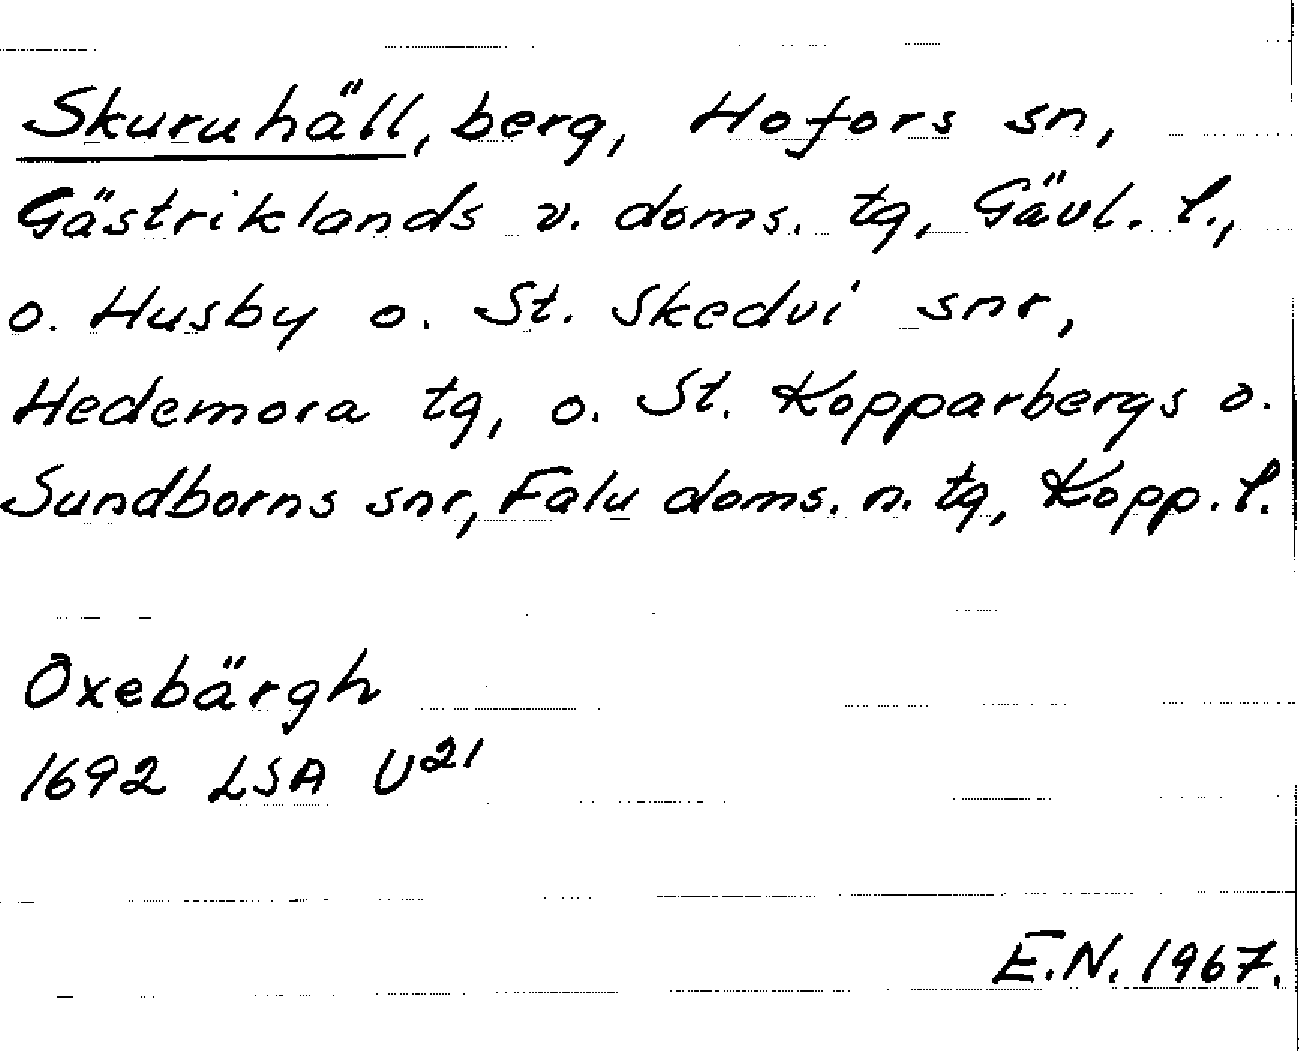 Skuruhäll, berg, Hofors sn,
Gästriklands v. doms. tg, Gävl. l.,
o. Husby o. St. Skedvi snr,
Hedemora tg, o. St. Kopparbergs o.
Sundborns snr, Falu doms. n. tg, Kopp. l.
Oxebärgh
1692 LSA U21
E.N. 1967.